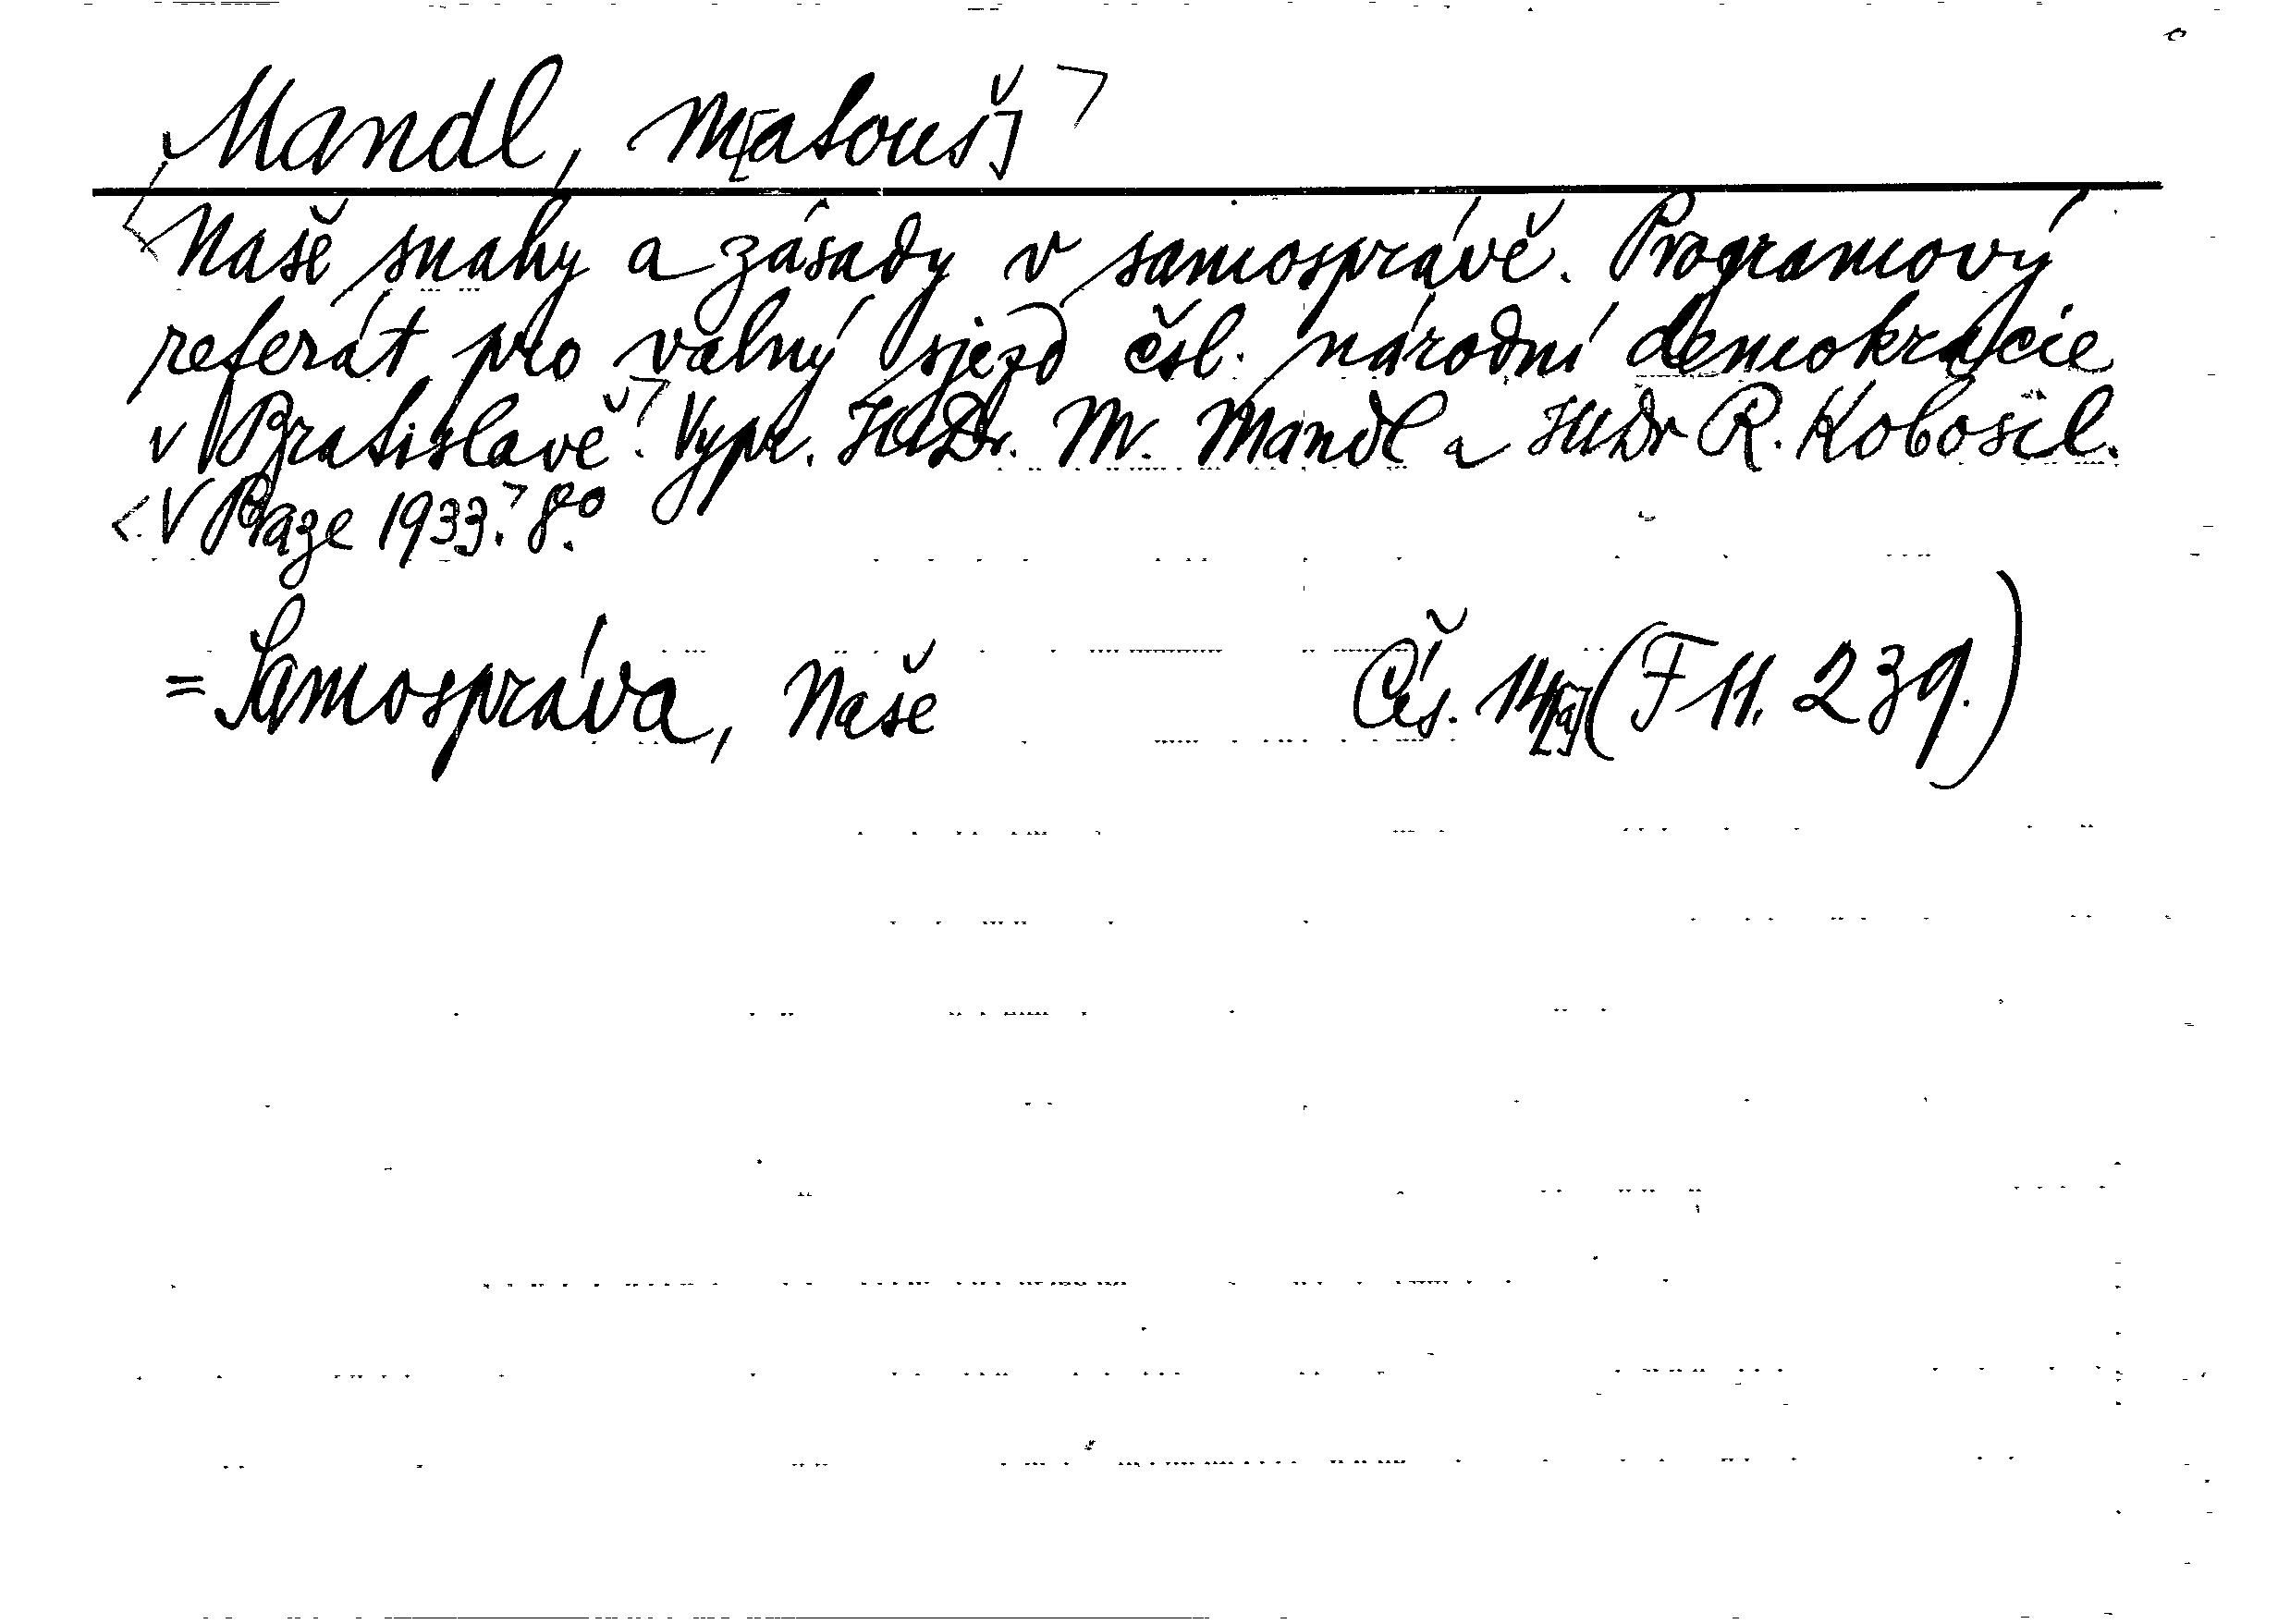 Mandl, M[atouš]
Naše snahy a zásady v samosprávě. Programový
referát pro valný sjezd čsl. národní demokracie
v Bratislavě. Vypr. JUDr. M. Mandl a JUDr R. Kobosil.
<V Praze 1933.> 8º.
= Samospráva, Naše Čís. 14[a] (F 11. 239.)